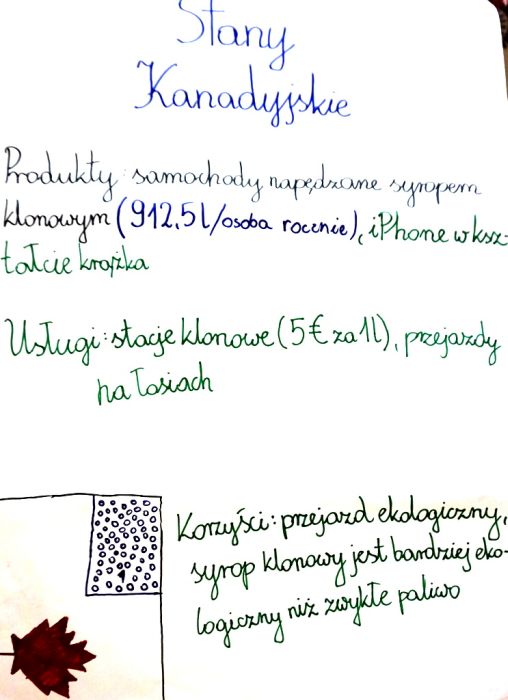 Stany
Kanadyjskie
Produkty: samochody napędzane syropem
klonowym (912,5l/osoba rocznie), iPhone w ksz-
tałcie krążka
Usługi: stacje klonowe (5€ za 1l), przejazdy
na łosiach
Korzyści: przejazd ekologiczny,
syrop klonowy jest bardziej eko-
logiczny niż zwykłe paliwo
1